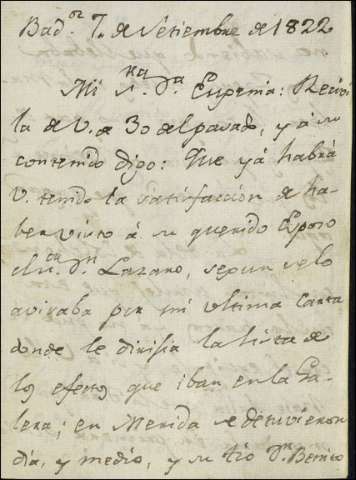 Bad.oz 7. de Setiembre de 1822
Mi s.ra D.a Eugenia: Recivi
la de V. de 30 del pasado, y á su
contenido digo: Que yá habrá
V. tenido la satisfaccion de ha-
ber visto á su querido Esposo
el S.or D.n Lazaro, segun se lo
avisaba por mi ultima carta
donde le dirigia la lista de
los efectos que iban en la Ga-
lera; en Merida se detuvieron
dia, y medio, y su tio D.n Benito